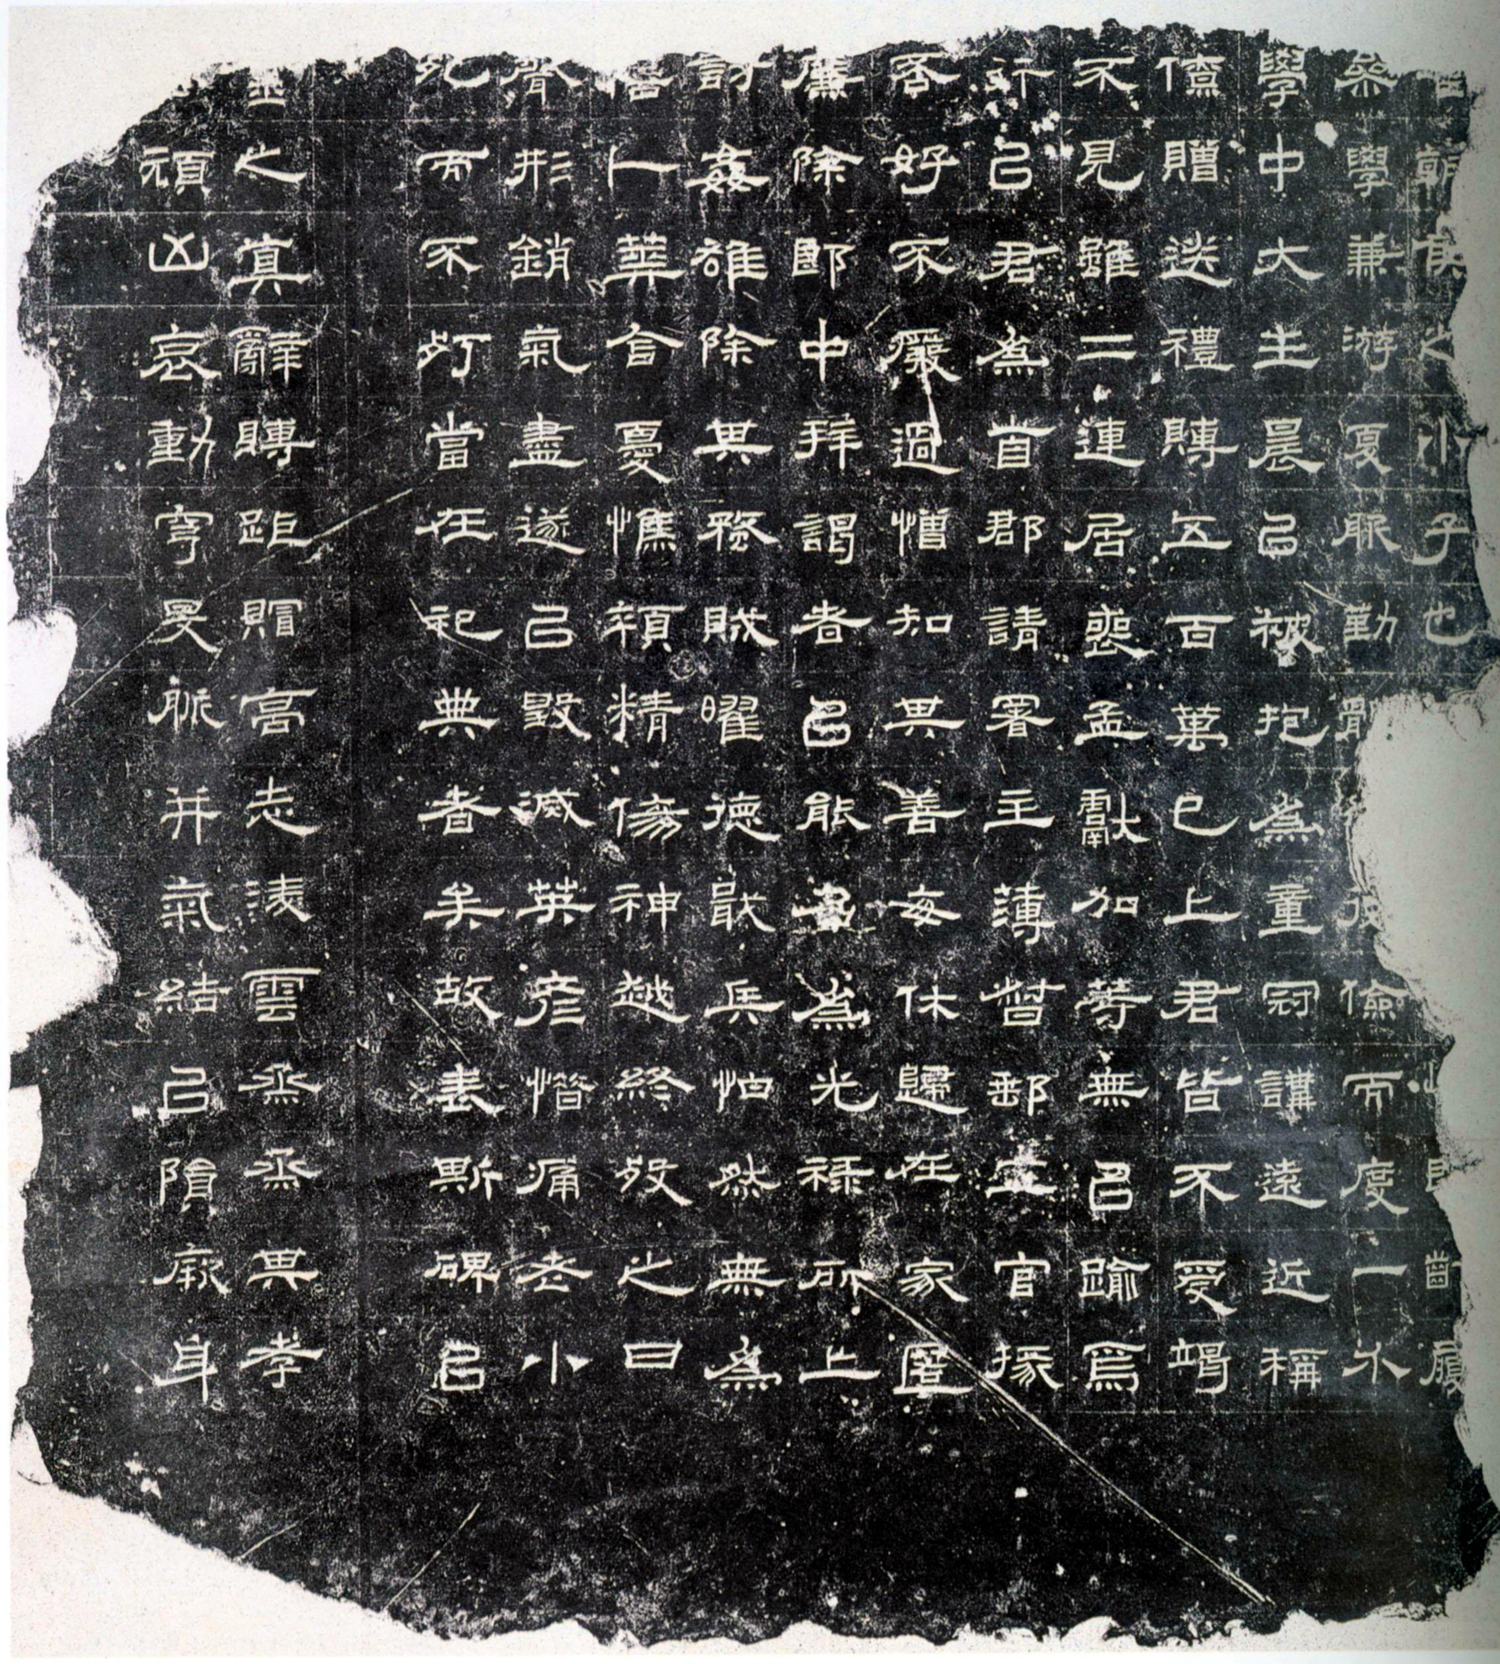 朝侯之小子也齒履
叅學兼游夏服勤儉而度一朩
學中大主晨以被抱爲童冠講遠近稱
僚贈送禮賻五百萬已上君皆不受竭
不見雖二連居喪孟獻加等無以踰焉
計以君爲首郡請署主薄督郵五官掾
否好不廢過憎知其善每休歸在家匿
廉除郎中拜謁者以能名爲光祿所上
討姦雄除其蝥賊曜德戢兵怕然無爲
告卜葬含憂憔顇精傷神越終歿之曰
聲形銷氣盡遂以毀滅英彥惜痛老小
死而不朽當在祀典者矣故表斯碑以
之真辭賻距賵高志淩雲烝烝其孝
頑凶哀動穹旻脈并氣結以隕厥身